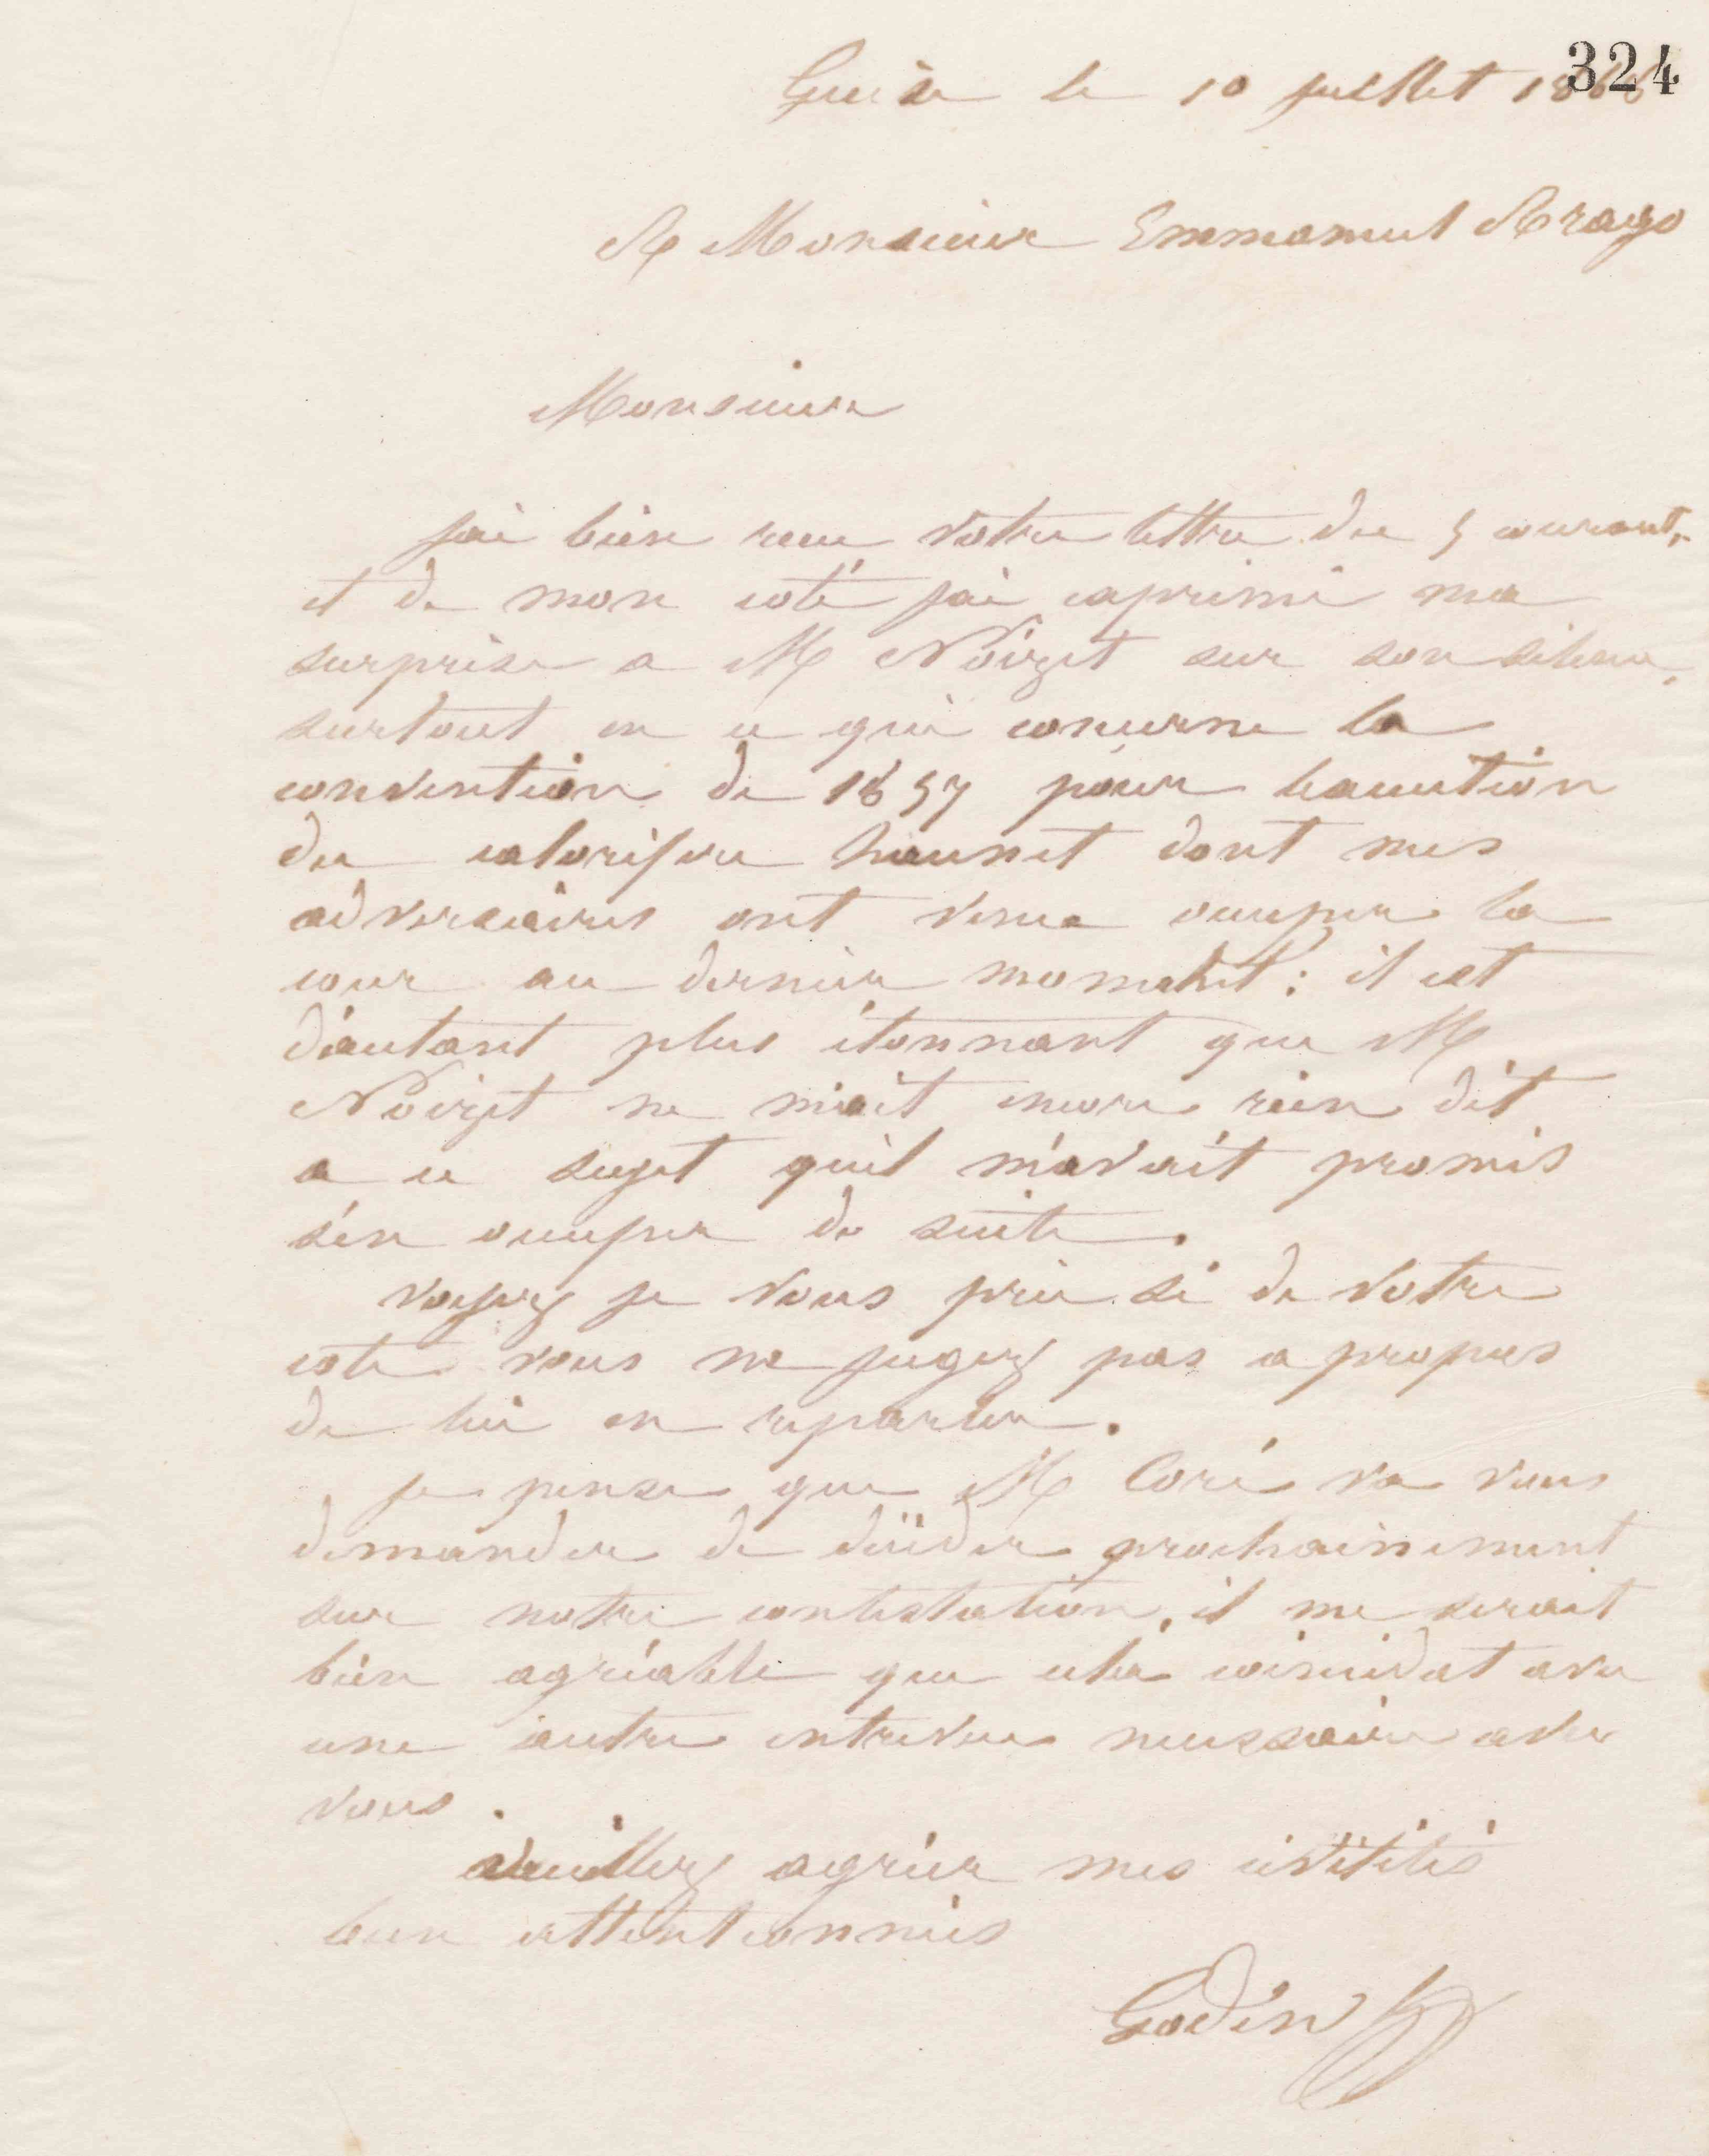 324
Guise le 10 juillet 186
A Monsieur Emmanuel Arago
Monsieur
j'ai bien recu votre lettre du 5 courant,
et de mon coté j'ai exprimé ma
surprise a M Noizet sur son silence,
surtout en ce qui concerne la
convention de 1857 pour l'execution
du calorifere dont mes
adversaires ont venu occuper la
cour au dernier moment : il est
d'autant plus étonnant que M
Noizet ne m'ait encore rien dit
a ce sujet qu'il m'avait promis
s'en occuper de suite.
voyez je vous prie si de votre
coté vous ne jugez pas a propos
de lui en reparler.
je pense que M Coré va vous
demander de décider prochainement
sur notre contestation, il me serait
bien agréable que cela coincidat avec
une autre entrevue necessaire avec
vous.
veuillez agréer mes civilités
bien attentionnées
Godin